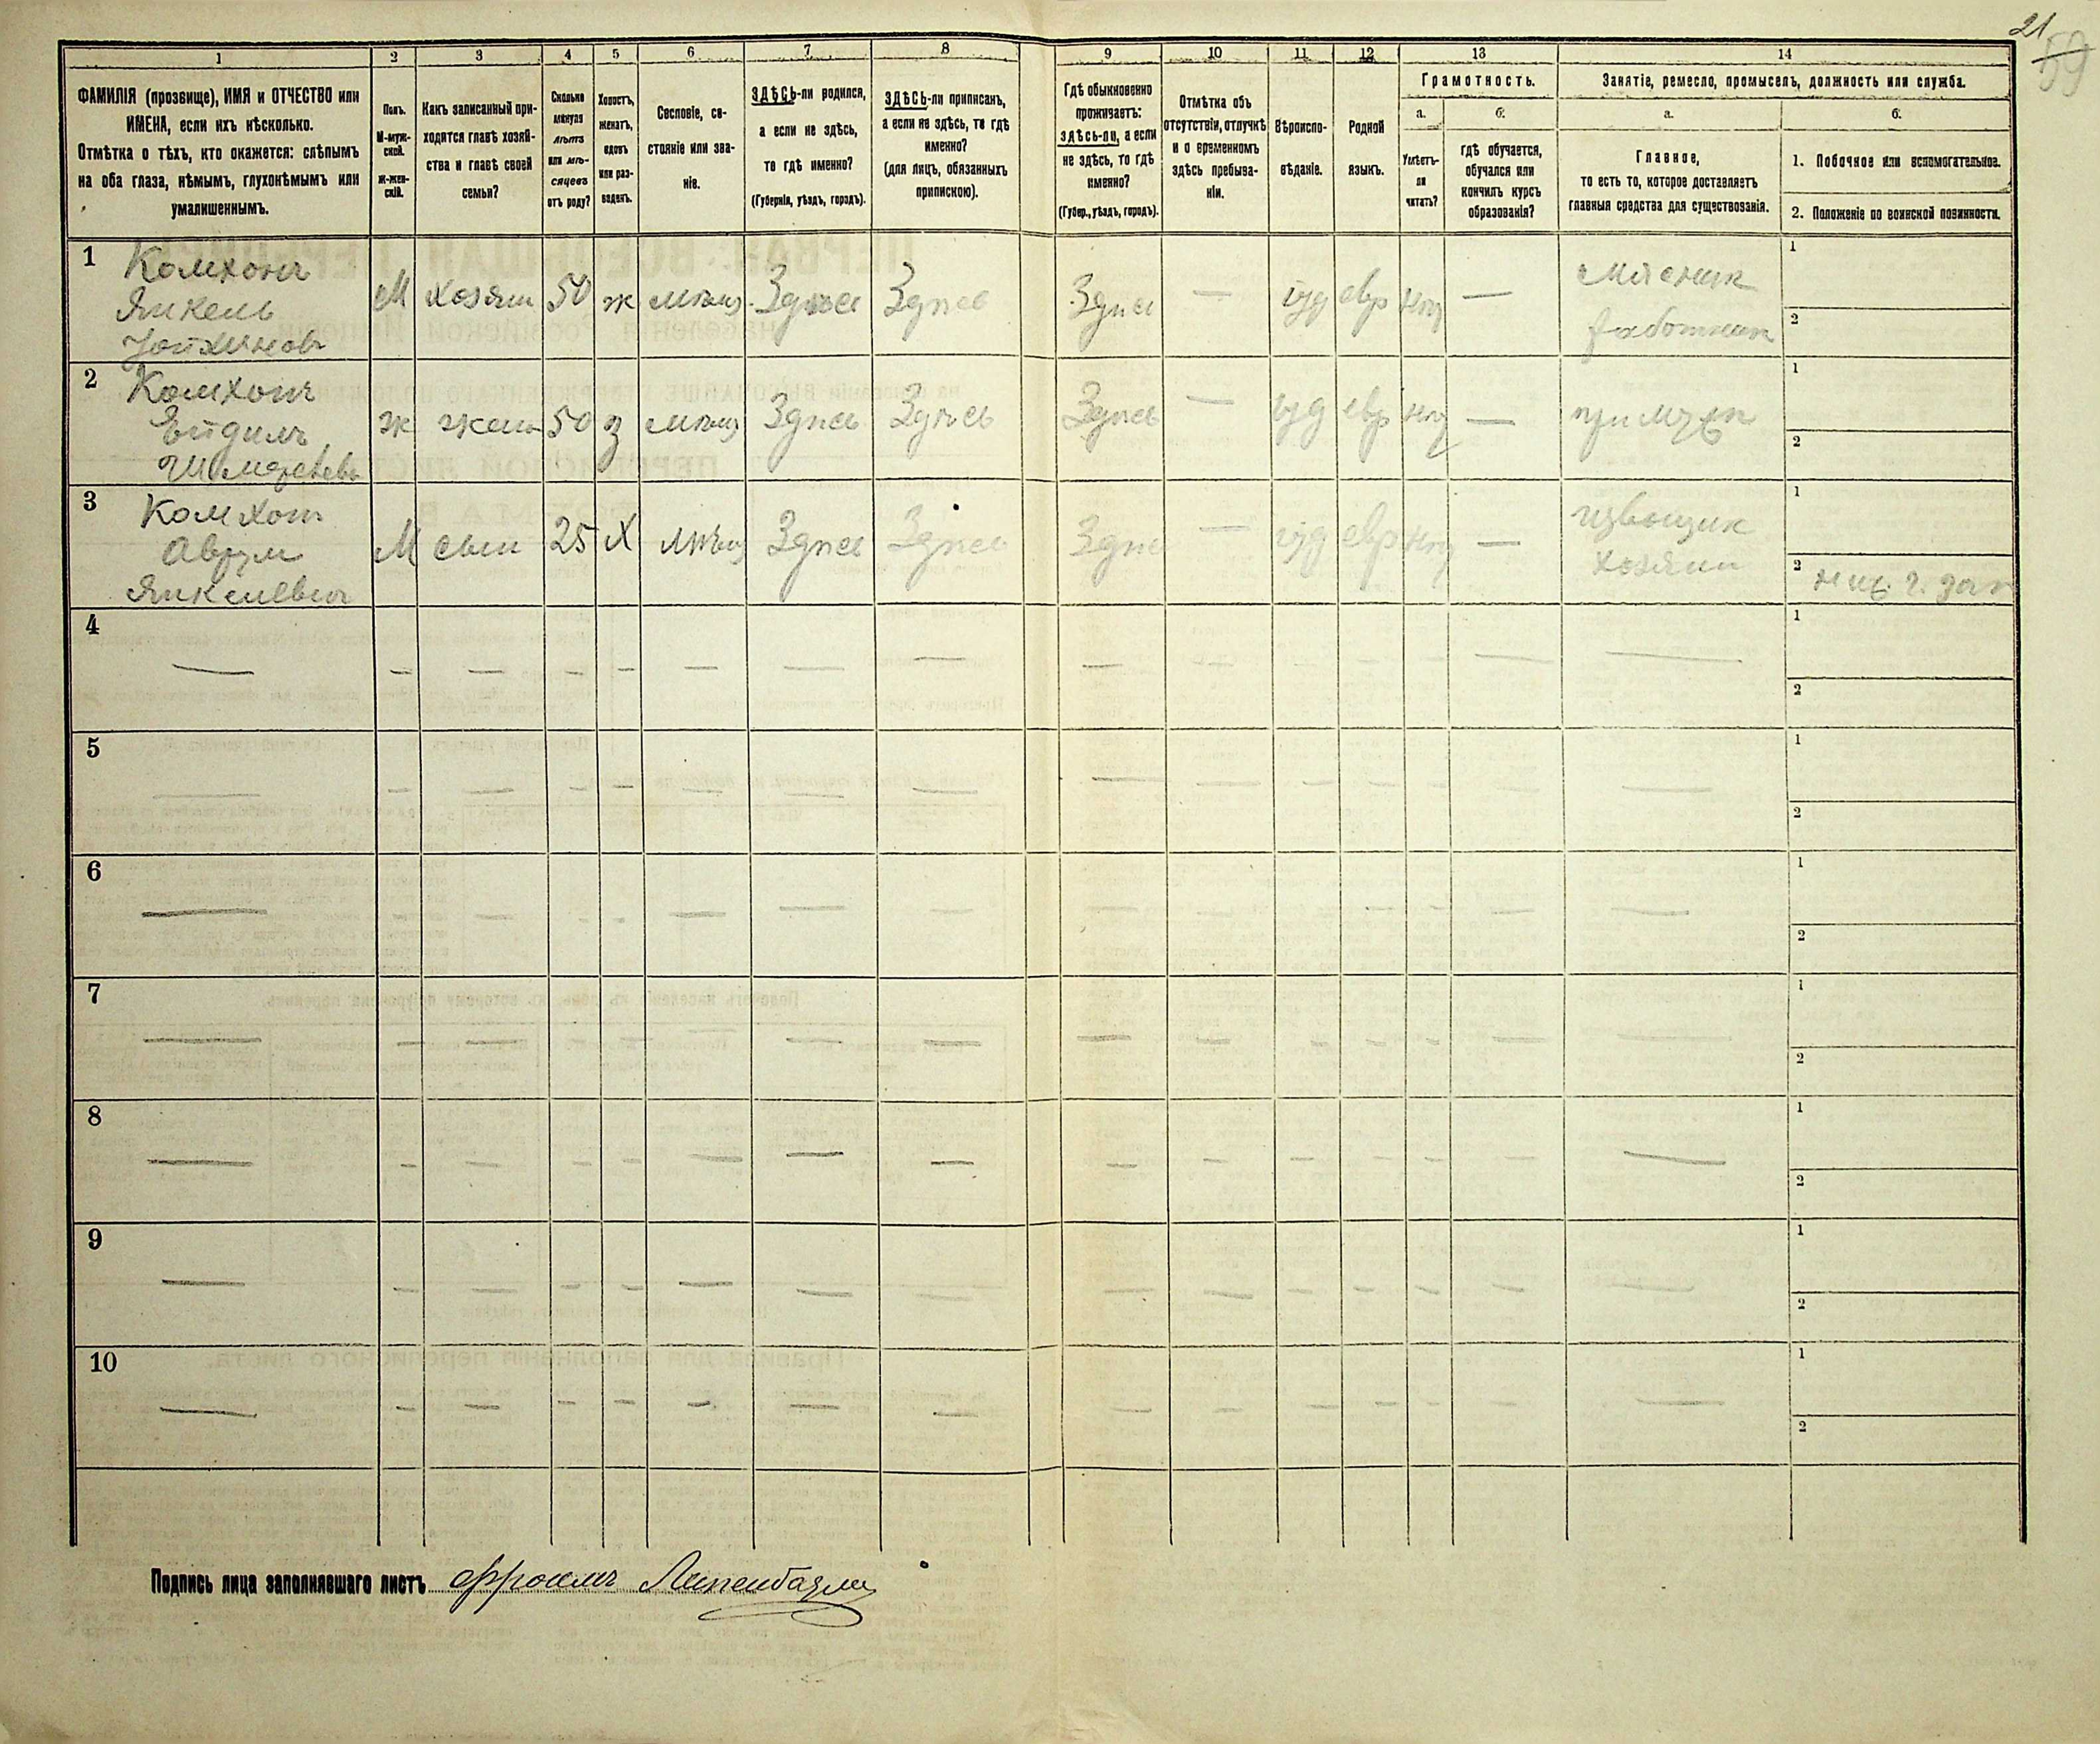 21
59
1 2 3 4 5 6 7 8 9 10 11 12 13 14
ФАМИЛІЯ (прозвище), ИМЯ и ОТЧЕСТВО или
ИМЕНА, если ихъ нѣсколько.
Отмѣтка о тѣхъ, кто окажется: слѣпымъ
на оба глаза, нѣмымъ, глухонѣмымъ или
умалишеннымъ.
Полъ.
М-муж-
ской.
Ж-жен-
скій.
Какъ записанный при-
ходится главѣ хозяй-
ства и главѣ своей
семьи?
Сколько
минуло
лѣтъ
или мѣ-
сяцевъ
отъ роду?
Холостъ,
женатъ,
вдовъ
или раз-
веденъ.
Сословіе, со-
стояніе или зва-
ніе.
ЗДѢСЬ-ли родился,
а если не здѣсь,
то гдѣ именно?
(Губернія, уѣздъ, городъ).
ЗДѢСЬ-ли приписанъ,
а если не здѣсь, то гдѣ
именно?
(для лицъ, обязанныхъ
припискою).
Гдѣ обыкновенно
проживаетъ:
здѣсь-ли, а если
не здѣсь, то гдѣ
именно?
(Губер., уѣздъ, городъ).
Отмѣтка объ
отсутствіи, отлучкѣ
и о временномъ
здѣсь пребыва-
ніи.
Вѣроиспо-
вѣданіе.
Родной
языкъ.
Грамотность.
а.
Умѣетъ-
ли
читать?
б.
гдѣ обучается,
обучался или
кончилъ курсъ
образованія?
Занятіе, ремесло, промыселъ, должность или служба.
а.
Главное,
то есть то, которое доставляетъ
главныя средства для существованія.
б.
1. Побочное или вспомогательное.
2. Положеніе по воинской повинности.
1
Янкель
М хозяин 50 ж мѣщ Здѣсь Здѣсь Здѣсь — іуд евр нѣт —
работник
1
2
2
ж жена 50 з мѣщ Здѣсь Здѣсь Здѣсь — іуд евр нѣт —
1
2
3
Аврум
Янкелевич
М сын 25 Х мѣщ Здѣсь Здѣсь Здѣсь — іуд евр нѣт —
извощик
хозяин
1
2
4 — — — — — — — — — — — — — — —
1
2
5 — — — — — — — — — — — — — — —
1
2
6 — — — — — — — — — — — — — — —
1
2
7 — — — — — — — — — — — — — — —
1
2
8 — — — — — — — — — — — — — — —
1
2
9 — — — — — — — — — — — — — — —
1
2
10 — — — — — — — — — — — — — — —
1
2
Подпись лица заполнявшаго листъ